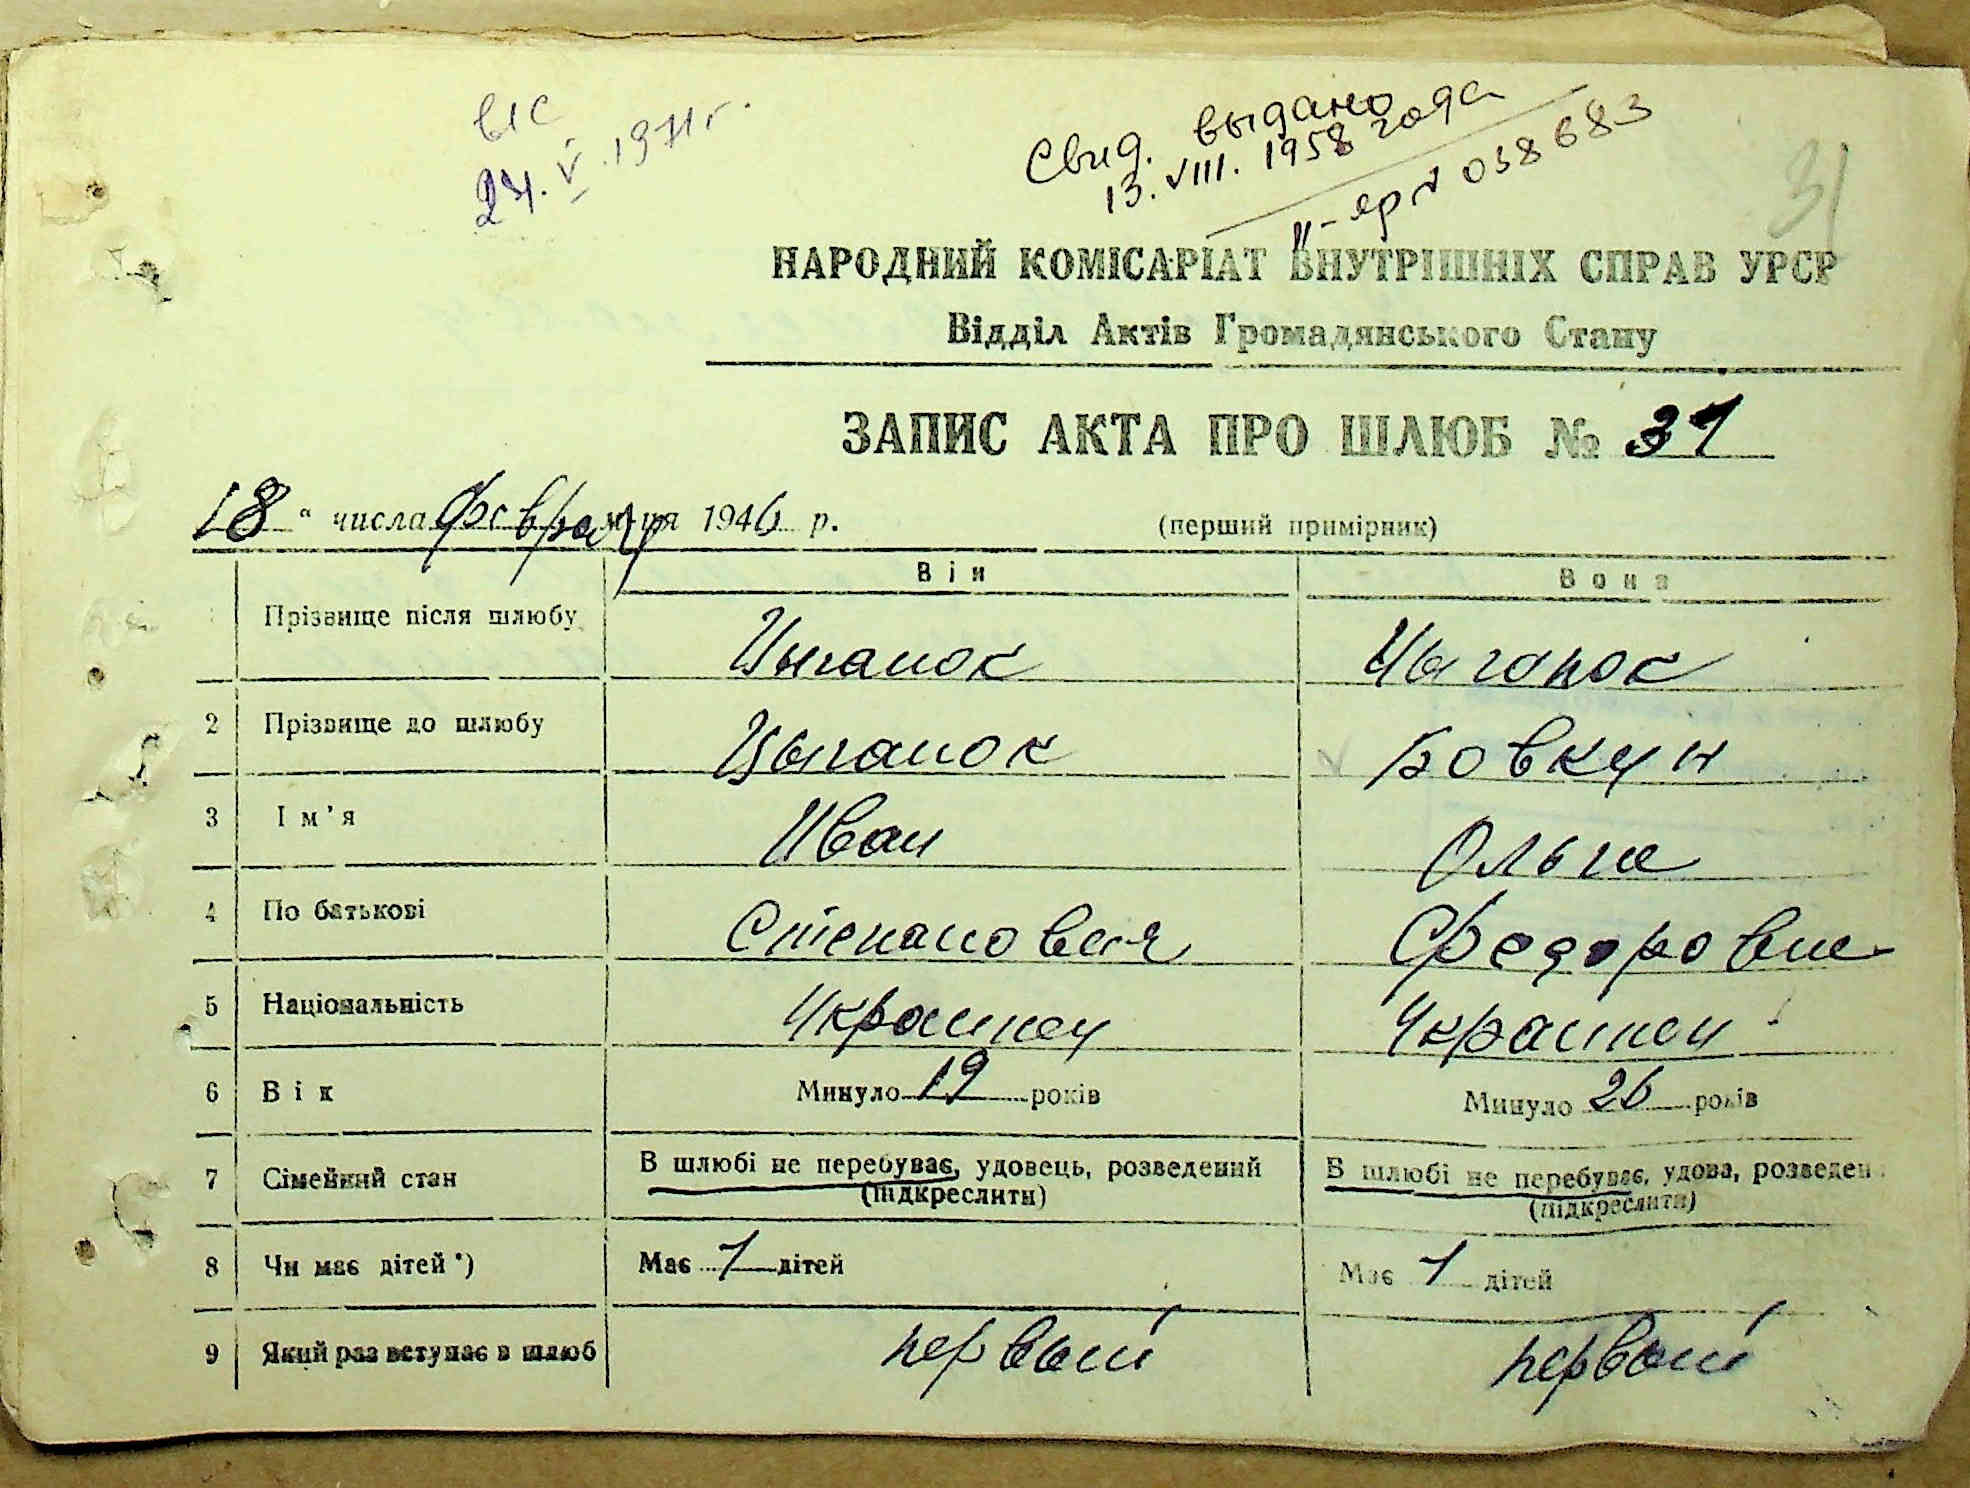 в/с
24.V.1971 г.
Свид. выдано
13.VIII.1958 года
II-яр № 038683
31
НАРОДНИЙ КОМІСАРІАТ ВНУТРІШНІХ СПРАВ УРСР
Відділ Актів Громадянського Стану
ЗАПИС АКТА ПРО ШЛЮБ № 31
18 " числа февраля м-ця 1946 р. (перший примірник)
Він Вона
Прізвище після шлюбу Цыганок Цыганок
2 Прізвище до шлюбу Цыганок Бовкун
3 Ім'я Иван Ольга
4 По батькові Степанович Федоровна
5 Національність Украинец Украинец
6 Вік Минуло 19 років Минуло 26 років
7 Сімейний стан В шлюбі не перебуває, удовець, розведений В шлюбі не перебуває, удова, розведен
(підкреслити) (підкреслити)
8 Чи має дітей *) Має 1 дітей Має 1 дітей
9 Який раз вступає в шлюб первый первый